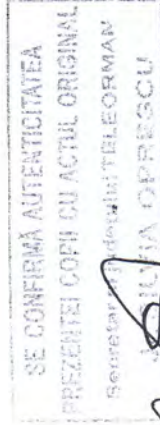 SE CONFIRMĂ AUTENTICITATEA
PREZENTEI COPII CU ACTUL ORIGINAL
Secretar al județului TELEORMAN
SILVIA OPRESCU